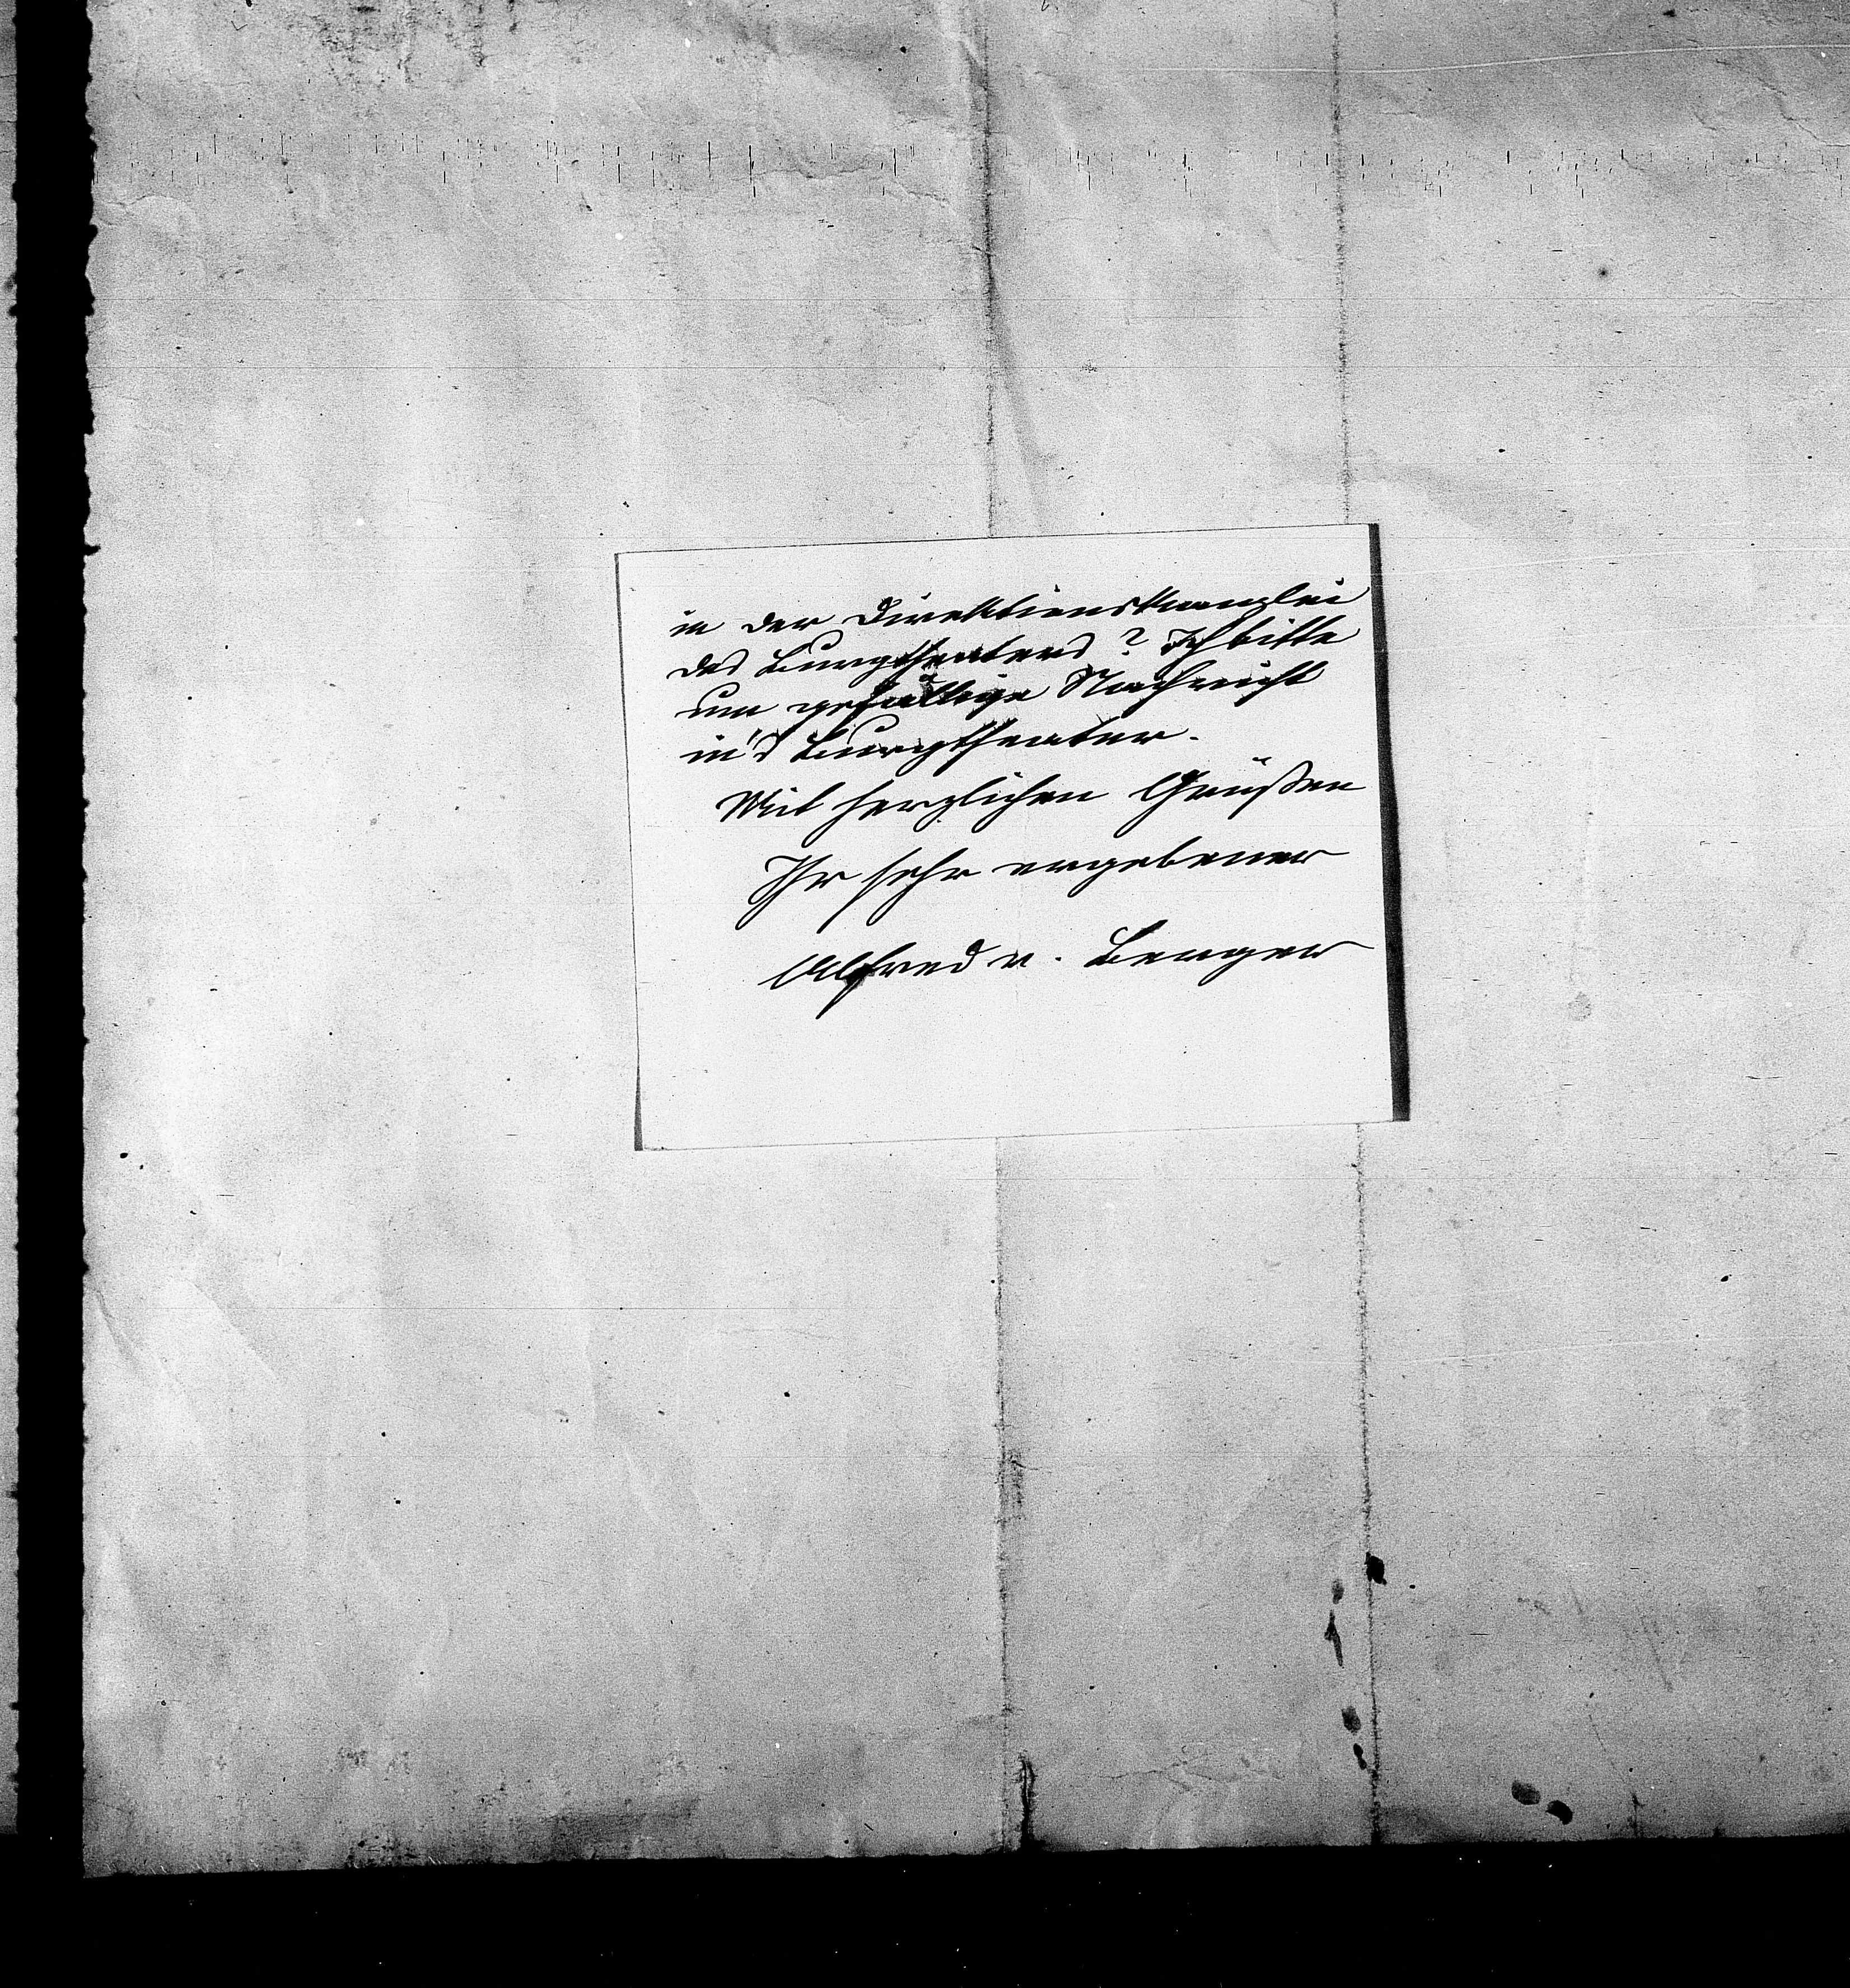 in der Direktionskanzlei
des Burgtheaters? Ich bitte
um gefällige Nachricht
in's Burgtheater.
Mit herzlichen Grüßen
Ihr sehr ergebener
Alfred v. Berger